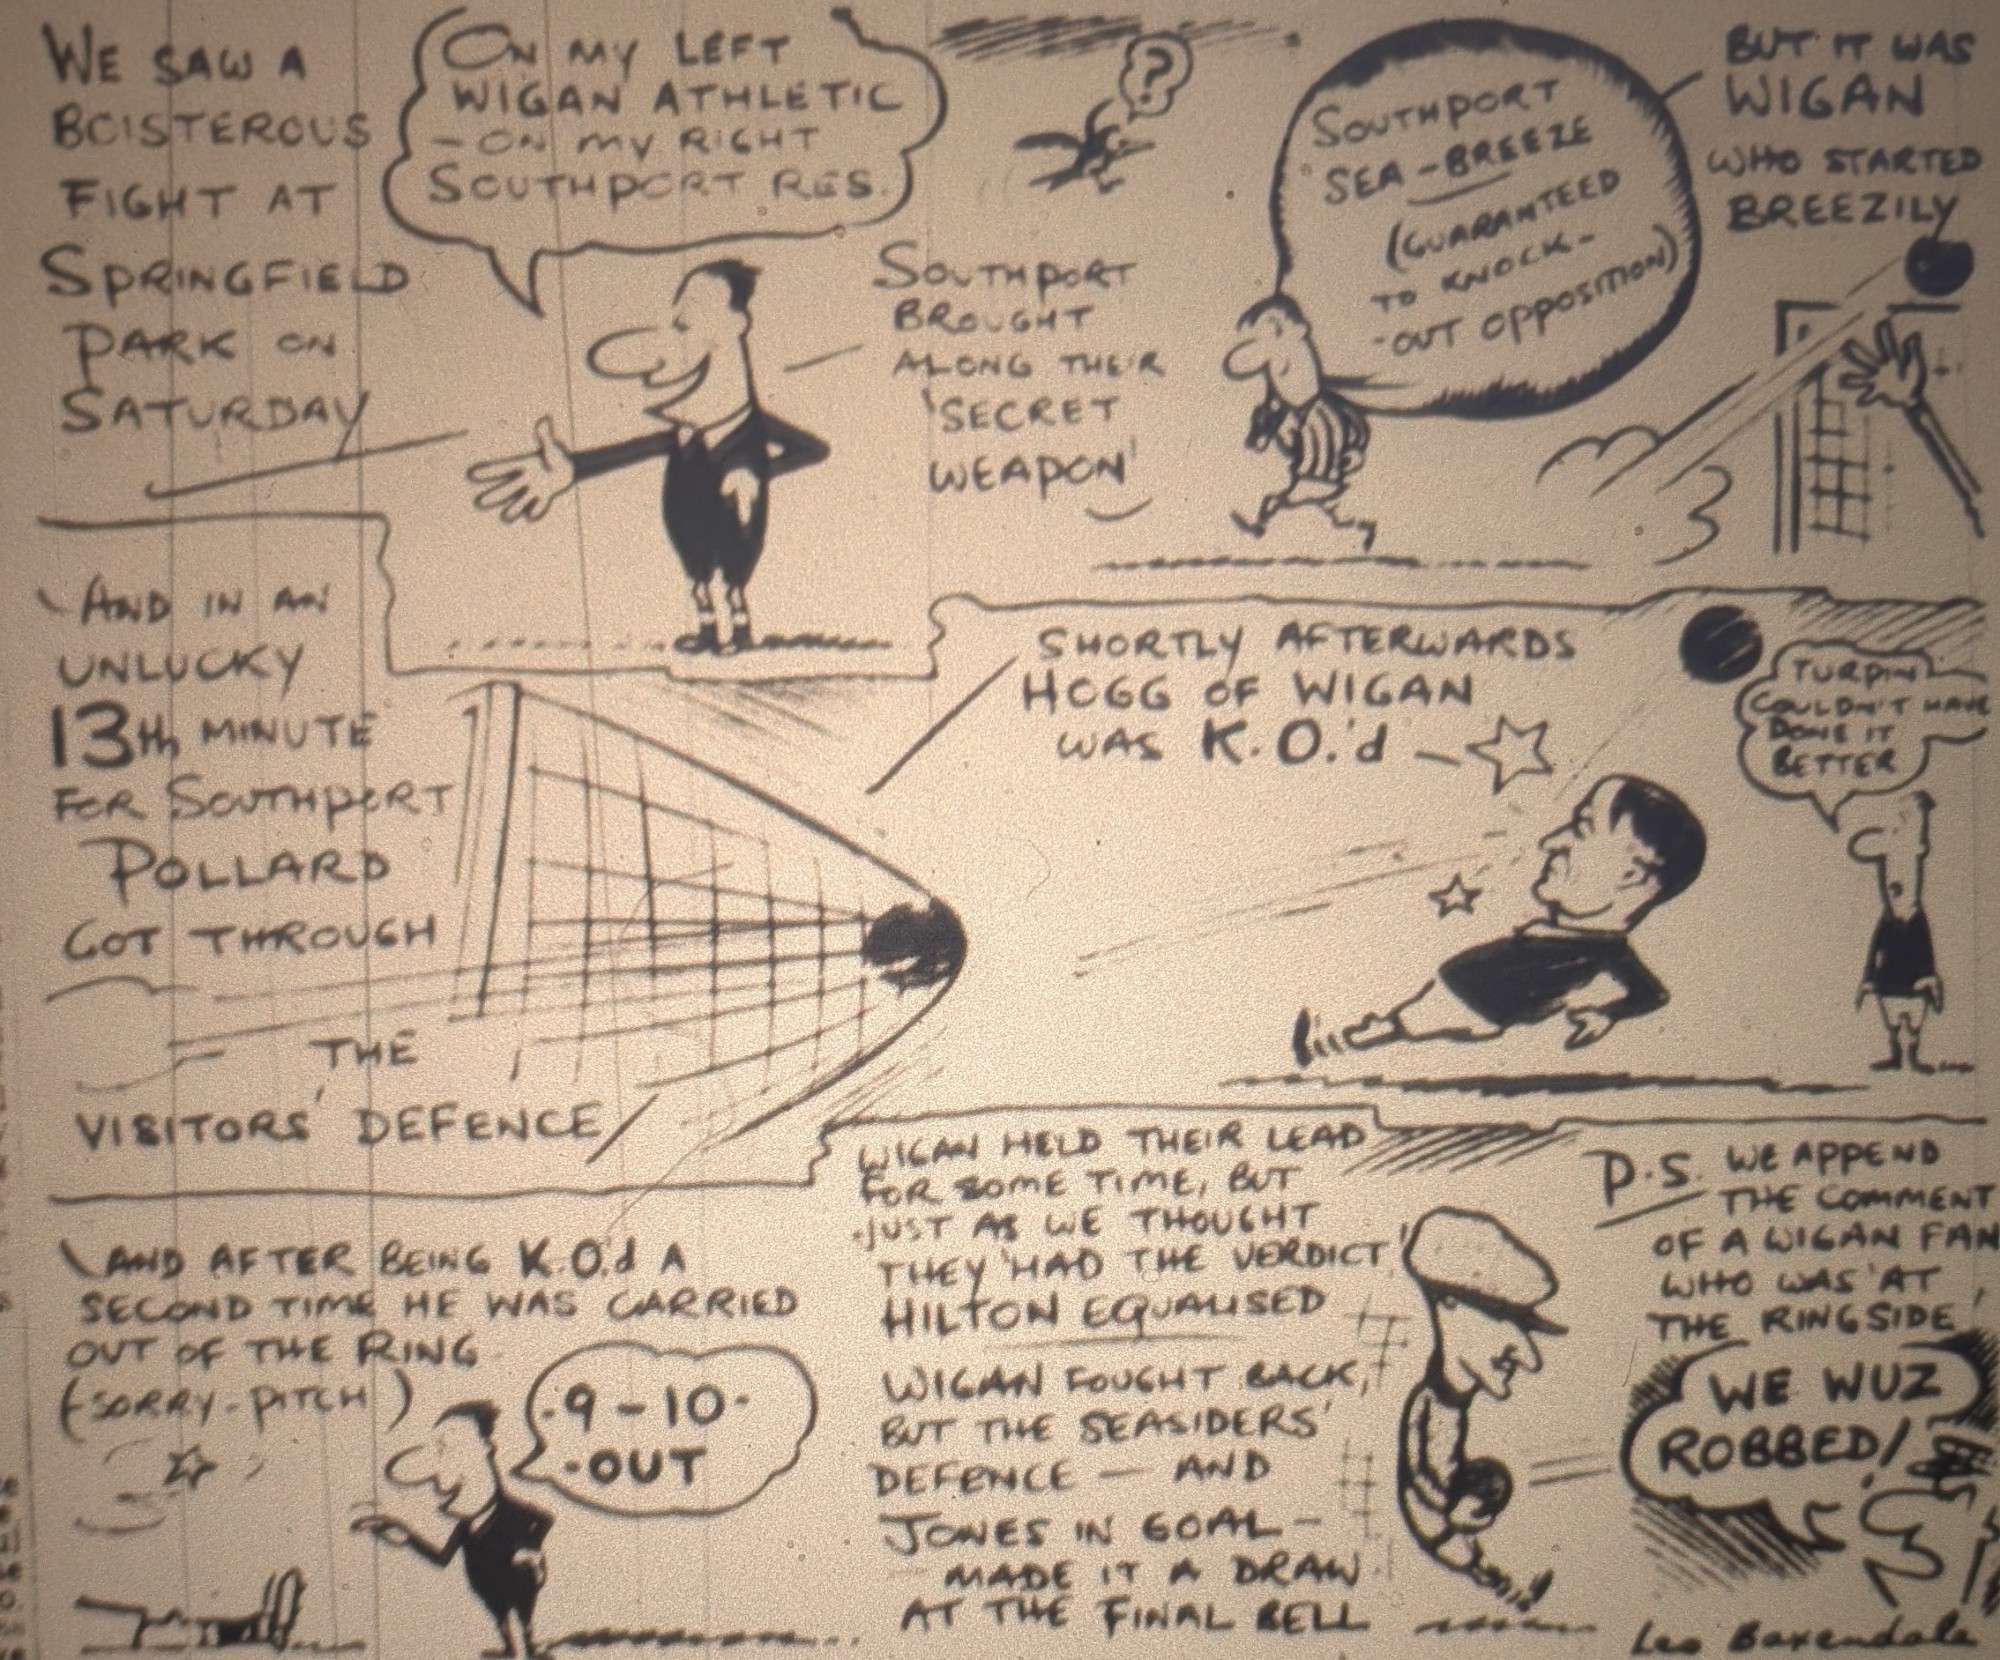 WE SAW A
BOISTEROUS
FIGHT AT
SPRINGFIELD
PARK ON
SATURDAY
ON MY LEFT
WIGAN ATHLETIC
- ON MY RIGHT
SOUTHPORT RES.
SOUTHPORT
BROUGHT
ALONG THEIR
'SECRET
WEAPON'
?
SOUTHPORT
SEA-BREEZE
(GUARANTEED
TO KNOCK-
-OUT OPPOSITION)
BUT IT WAS
WIGAN
WHO STARTED
BREEZILY
AND IN AN
UNLUCKY
13TH MINUTE
FOR SOUTHPORT
POLLARD
GOT THROUGH
THE
VISITORS' DEFENCE
SHORTLY AFTERWARDS
HOGG OF WIGAN
WAS K.O.'d -
TURPIN
COULDN'T HAVE
DONE IT
BETTER
AND AFTER BEING K.O.'d A
SECOND TIME HE WAS CARRIED
OUT OF THE RING
(SORRY - PITCH)
·9-10-
-OUT
WIGAN HELD THEIR LEAD
FOR SOME TIME, BUT
JUST AS WE THOUGHT
THEY 'HAD THE VERDICT'
HILTON EQUALISED
WIGAN FOUGHT BACK,
BUT THE SEASIDERS'
DEFENCE — AND
JONES IN GOAL -
MADE IT A DRAW
AT THE FINAL BELL
P.S. WE APPEND
THE COMMENT
OF A WIGAN FAN
WHO WAS 'AT
THE RINGSIDE'
WE WUZ
ROBBED!
Leo Baxendale